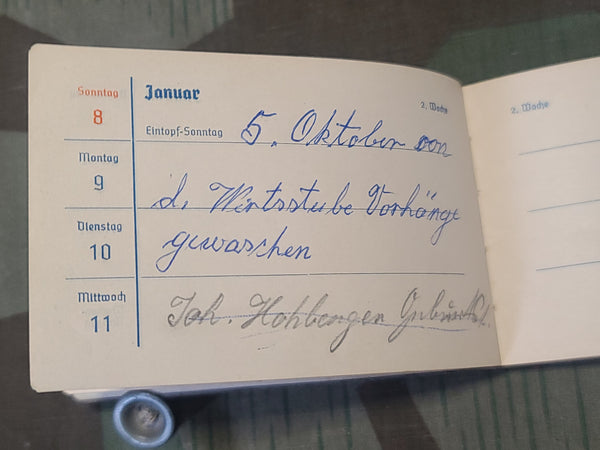 Sonntag
8
Januar
2. Woche
Eintopf-Sonntag
5. Oktober von
Montag
9
d. Wirtsstube Vorhänge
Dienstag
10
gewaschen
Mittwoch
11
Joh. Hohberger
2. Woche